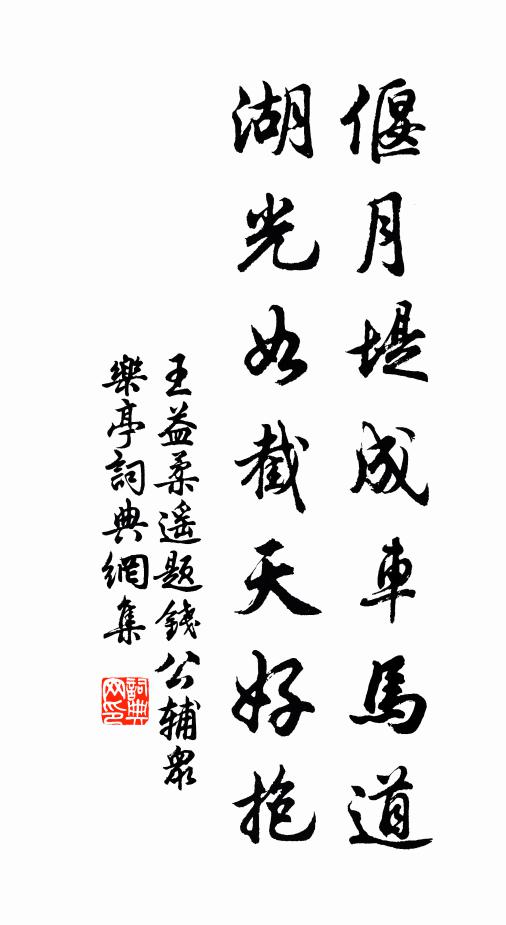 偃月堤成車馬道
湖光如截天好抱
王益柔遥题錢公辅眾
樂亭詞典網集
詞典
网印